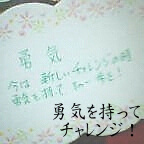 勇気
今は 新しいチャレンジの時
勇気を持って
勇気を持って
チャレンジ！